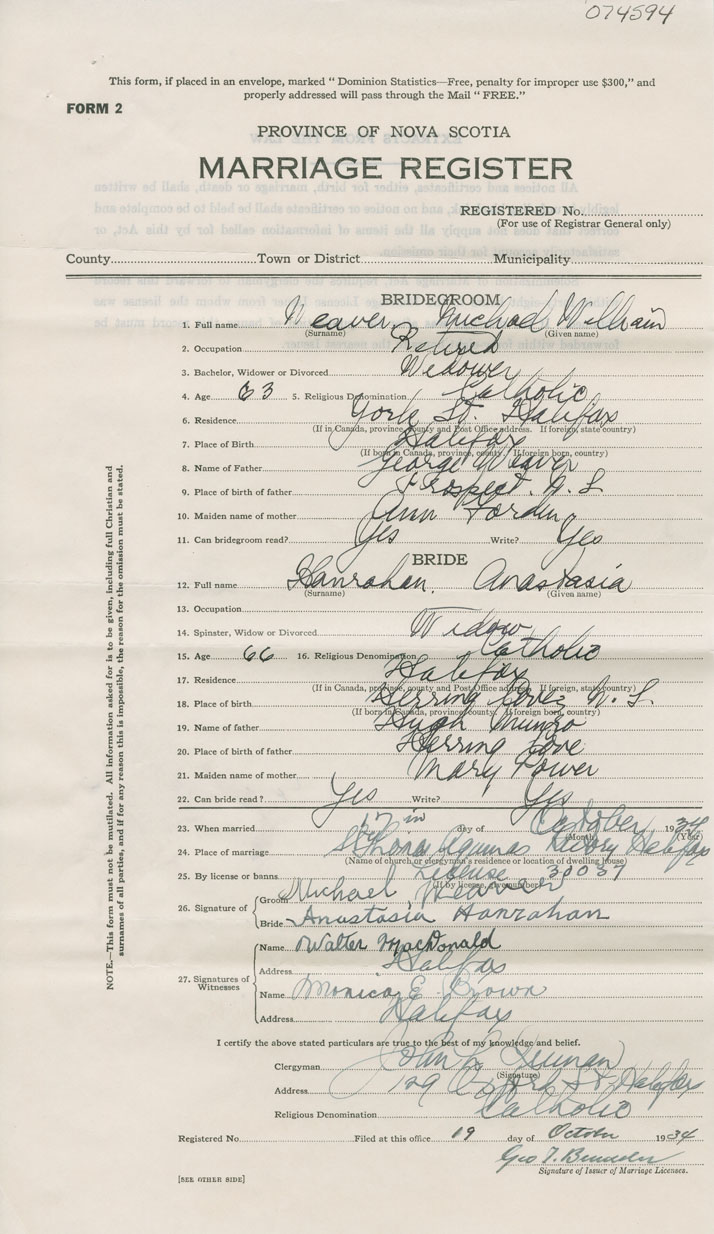 074594
This form, if placed in an envelope, marked " Dominion Statistics—Free, penalty for improper use $300," and
properly addressed will pass through the Mail " FREE."
FORM 2
PROVINCE OF NOVA SCOTIA
MARRIAGE REGISTER
REGISTERED No.
(For use of Registrar General only)
County Town or District Municipality
BRIDEGROOM
1. Full name Weaver Michael William
(Surname) (Given name)
2. Occupation Retired
3. Bachelor, Widower or Divorced Widower
4. Age 63 5. Religious Denomination Catholic
6. Residence York St. Halifax
(If in Canada, province, county and Post Office address. If foreign, state country)
7. Place of Birth Halifax
(If born in Canada, province, county. If foreign born, country)
8. Name of Father George Weaver
9. Place of birth of father Prospect. N. S.
10. Maiden name of mother Ann
11. Can bridegroom read? Yes Write? Yes
BRIDE
12. Full name Hanrahan. Anastasia
(Surname) (Given name)
13. Occupation
14. Spinster, Widow or Divorced Widow
15. Age 66 16. Religious Denomination Catholic
17. Residence Halifax
(If in Canada, province, county and Post Office address. If foreign, state country)
18. Place of birth Herring Cove N. S.
(If born in Canada, province, county. If foreign born, country)
19. Name of father Hugh Munro
20. Place of birth of father Herring Cove
21. Maiden name of mother Mary Power
22. Can bride read? Yes Write? Yes
23. When married 17 day of October 1934
(Month) (Year)
24. Place of marriage St Thomas Aquinas Rectory Halifax
(Name of church or clergyman's residence or location of dwelling house)
25. By license or banns License 30037
(If by license, give number)
26. Signature of
Groom Michael Weaver
Bride Anastasia Hanrahan
27. Signatures of
Witnesses
Name Walter MacDonald
Address Halifax
Name Monica E. Brown
Address Halifax
I certify the above stated particulars are true to the best of my knowledge and belief.
Clergyman John L. Quinan
(Signature)
Address 129 Oxford St Halifax
Religious Denomination Catholic
Registered No. Filed at this office 19 day of October 1934
Geo T.
Signature of Issuer of Marriage Licenses.
[SEE OTHER SIDE]
NOTE.—This form must not be mutilated. All information asked for is to be given, including full Christian and
surnames of all parties, and if for any reason this is impossible, the reason for the omission must be stated.